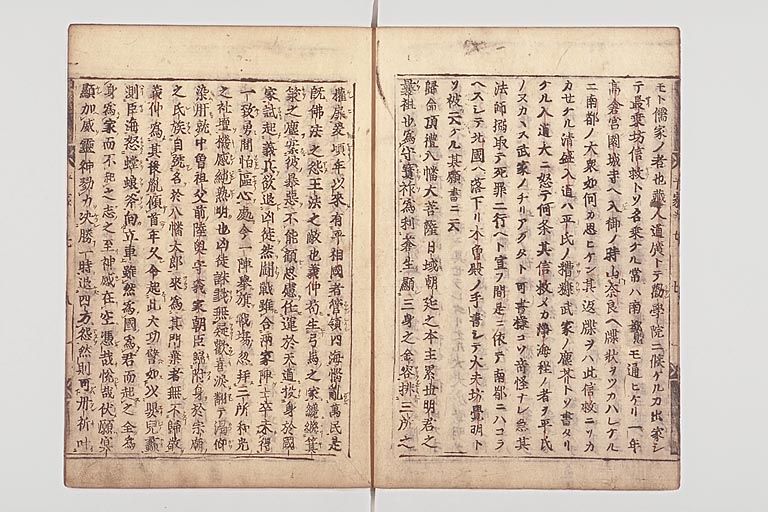 モト儒家ノ者也蔵人道廣トテ勸學院ニ候ケルカ出家シ
テ最乗坊信救トソ名乗ケル常ハ南都ヘモ通ヒケリ一年
高倉宮園城寺ヘ入御ノ時山奈良ヘ牒狀ヲツカハレケル
ニ南都ノ大衆如何カ思ヒケン其返牒ヲハ此信救ニソカ
カセケル清盛入道ハ平氏ノ糟糠武家ノ塵芥トソ書タリ
ケル入道大ニ怒テ何条其信救メカ浄海程ノ者ヲ平氏
ノヌカカス武家ノチリアクタト可書様コソ奇怪ナレ急其
法師搦取テ死罪ニ行ヘト宣フ間是ニ依テ南都ニハコラ
ヘスシテ北國ヘ落下リ木曽殿ノ手書シテ大夫坊覺明ト
ソ被云ケル其願書ニ云
歸命頂禮八幡大菩薩日域朝廷之本主累世明君之
曩祖也為守寶祚為利蒼生顯三身之金容排三所之
權扉爰頃年以來有平相國者管領四海惱亂萬民是
既佛法之怨王法之敵也義仲苟生弓馬之家纔繼箕
裘之塵案彼暴惡不能顧思慮任運於天道投身於國
家試起義兵欲退凶徒然闘戰雖合兩家陣士卒未得
一致勇間怕區心處今一陣擧旗戰場忽拝三所和光
之社壇機感純熟明也凶徒誅戮無疑歡喜淚翻テ渇仰
染肝就中曽祖父前陸奥守義家朝臣歸附身於宗廟
之氏族自號名於八幡太郎來為其門葉者無不歸敬
義仲為其後胤傾首年久今起此大功譬如以嬰兒蠡
測巨海怒螳螂斧向立車雖然為國為君而起之全為
身為家而不起之志之至神感在空憑哉悦哉伏願冥
顯加威靈神勠力決勝一時退四方怨然則可丹祈叶